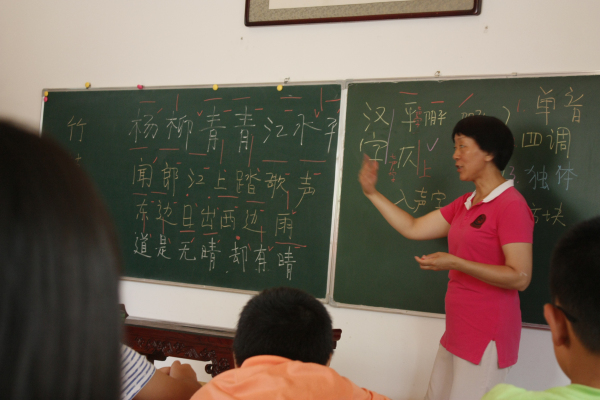 竹
杨柳青青江水平
闻郎江上踏歌声
东边日出西边雨
道是无晴却有晴
汉 平 阴 阳 单音
字 仄 上 四调
入声字 独体
方块